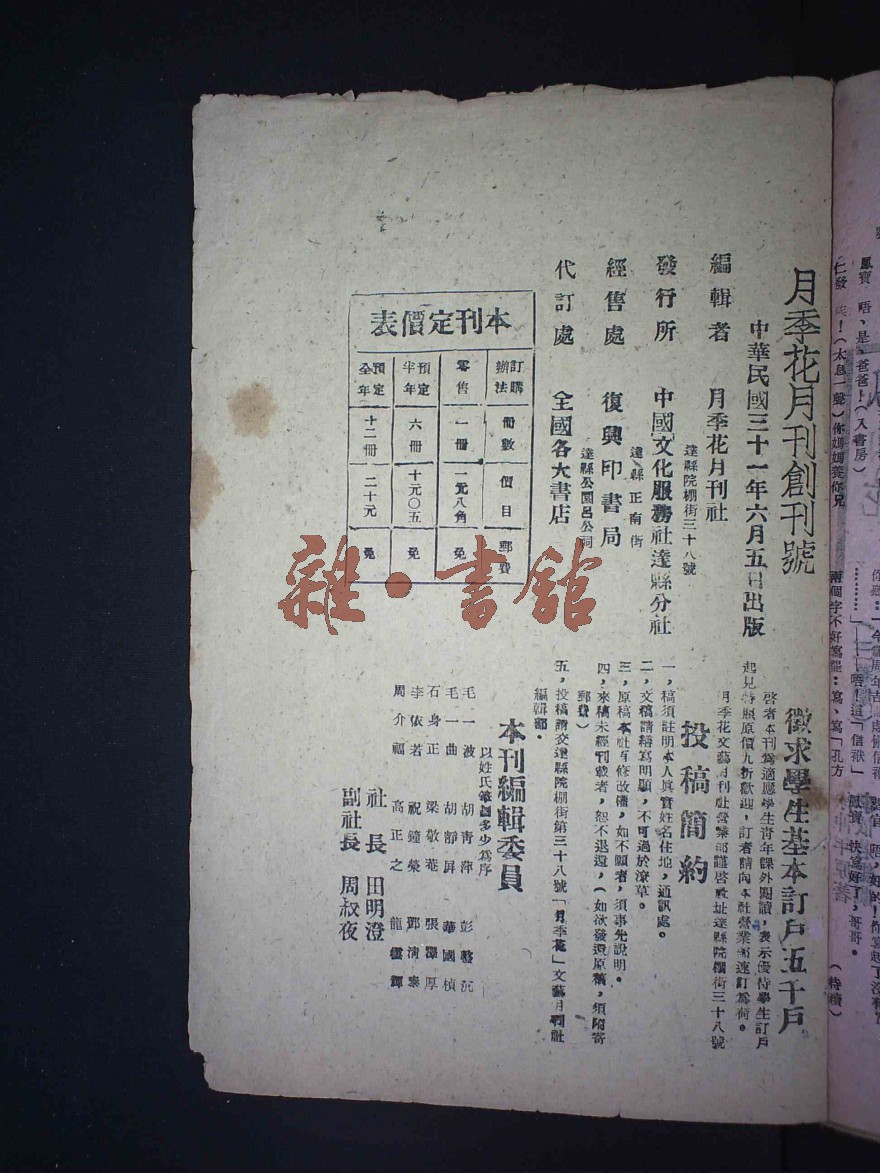 月季花月刊創刊號
中華民國三十一年六月五日出版
編輯者 月季花月刊社
達縣院棚街三十八號
發行所 中國文化服務社達縣分社
達縣正南街
經售處 復興印書局
達縣公園呂公祠
代訂處 全國各大書店
本刊定價表
訂購辦法 冊數 價目 郵費
零售 一冊 一元八角 免
預定半年 六冊 十元〇五 免
預定全年 十二冊 二十元 免
徵求學生基本訂戶五千戶
啓者本刊爲適應學生青年課外閱讀,表示優待學生訂戶
起見特照原價九折歡迎,訂者請向本社營業部速訂爲荷。
月季花文藝月刊社營業部謹啓社址達縣院棚街三十八號
投稿簡約
一,稿須註明本人眞實姓名住地,通訊處。
二,文稿請繕寫明顯,不可過於潦草。
三,原稿本社有修改權,如不願者,須事先說明。
四,來稿未經刊載者,恕不退還,(如欲發還原稿,須附寄
郵費)
五,投稿請交達縣院棚街第三十八號「月季花」文藝月刊社
編輯部。
本刊編輯委員
以姓氏筆劃多少爲序
毛一波 胡青萍 彭
毛一曲 胡靜屏 華國楨
石身正 梁敬菴 張澤厚
李依若 祝鐘榮 鄧淸泰
周介福 高正之 龍靈輝
社長 田明澄
副社長 周叔夜
雜·書館
鳳寶 唔,是,爸爸!(入書房)
仁發 !(太息一聲)你媽媽
兩個字不好寫罷:寫、寫「孔方
………」——唔!這「信猷」
快寫好了,哥哥。
(待續)